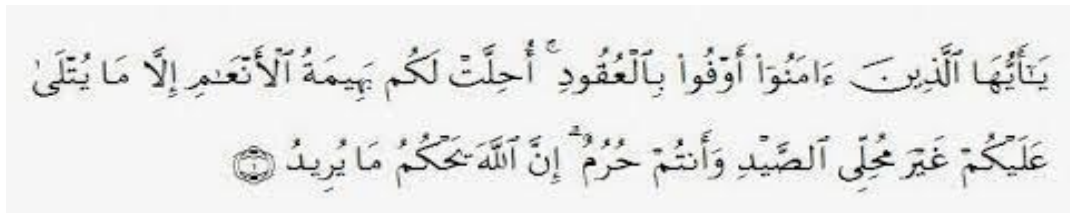 يَٰٓأَيُّهَا ٱلَّذِينَ ءَامَنُوٓا۟ أَوْفُوا۟ بِٱلْعُقُودِ ۚ أُحِلَّتْ لَكُم بَهِيمَةُ ٱلْأَنْعَٰمِ إِلَّا مَا يُتْلَىٰ
عَلَيْكُمْ غَيْرَ مُحِلِّى ٱلصَّيْدِ وَأَنتُمْ حُرُمٌ ۗ إِنَّ ٱللَّهَ يَحْكُمُ مَا يُرِيدُ ۝١